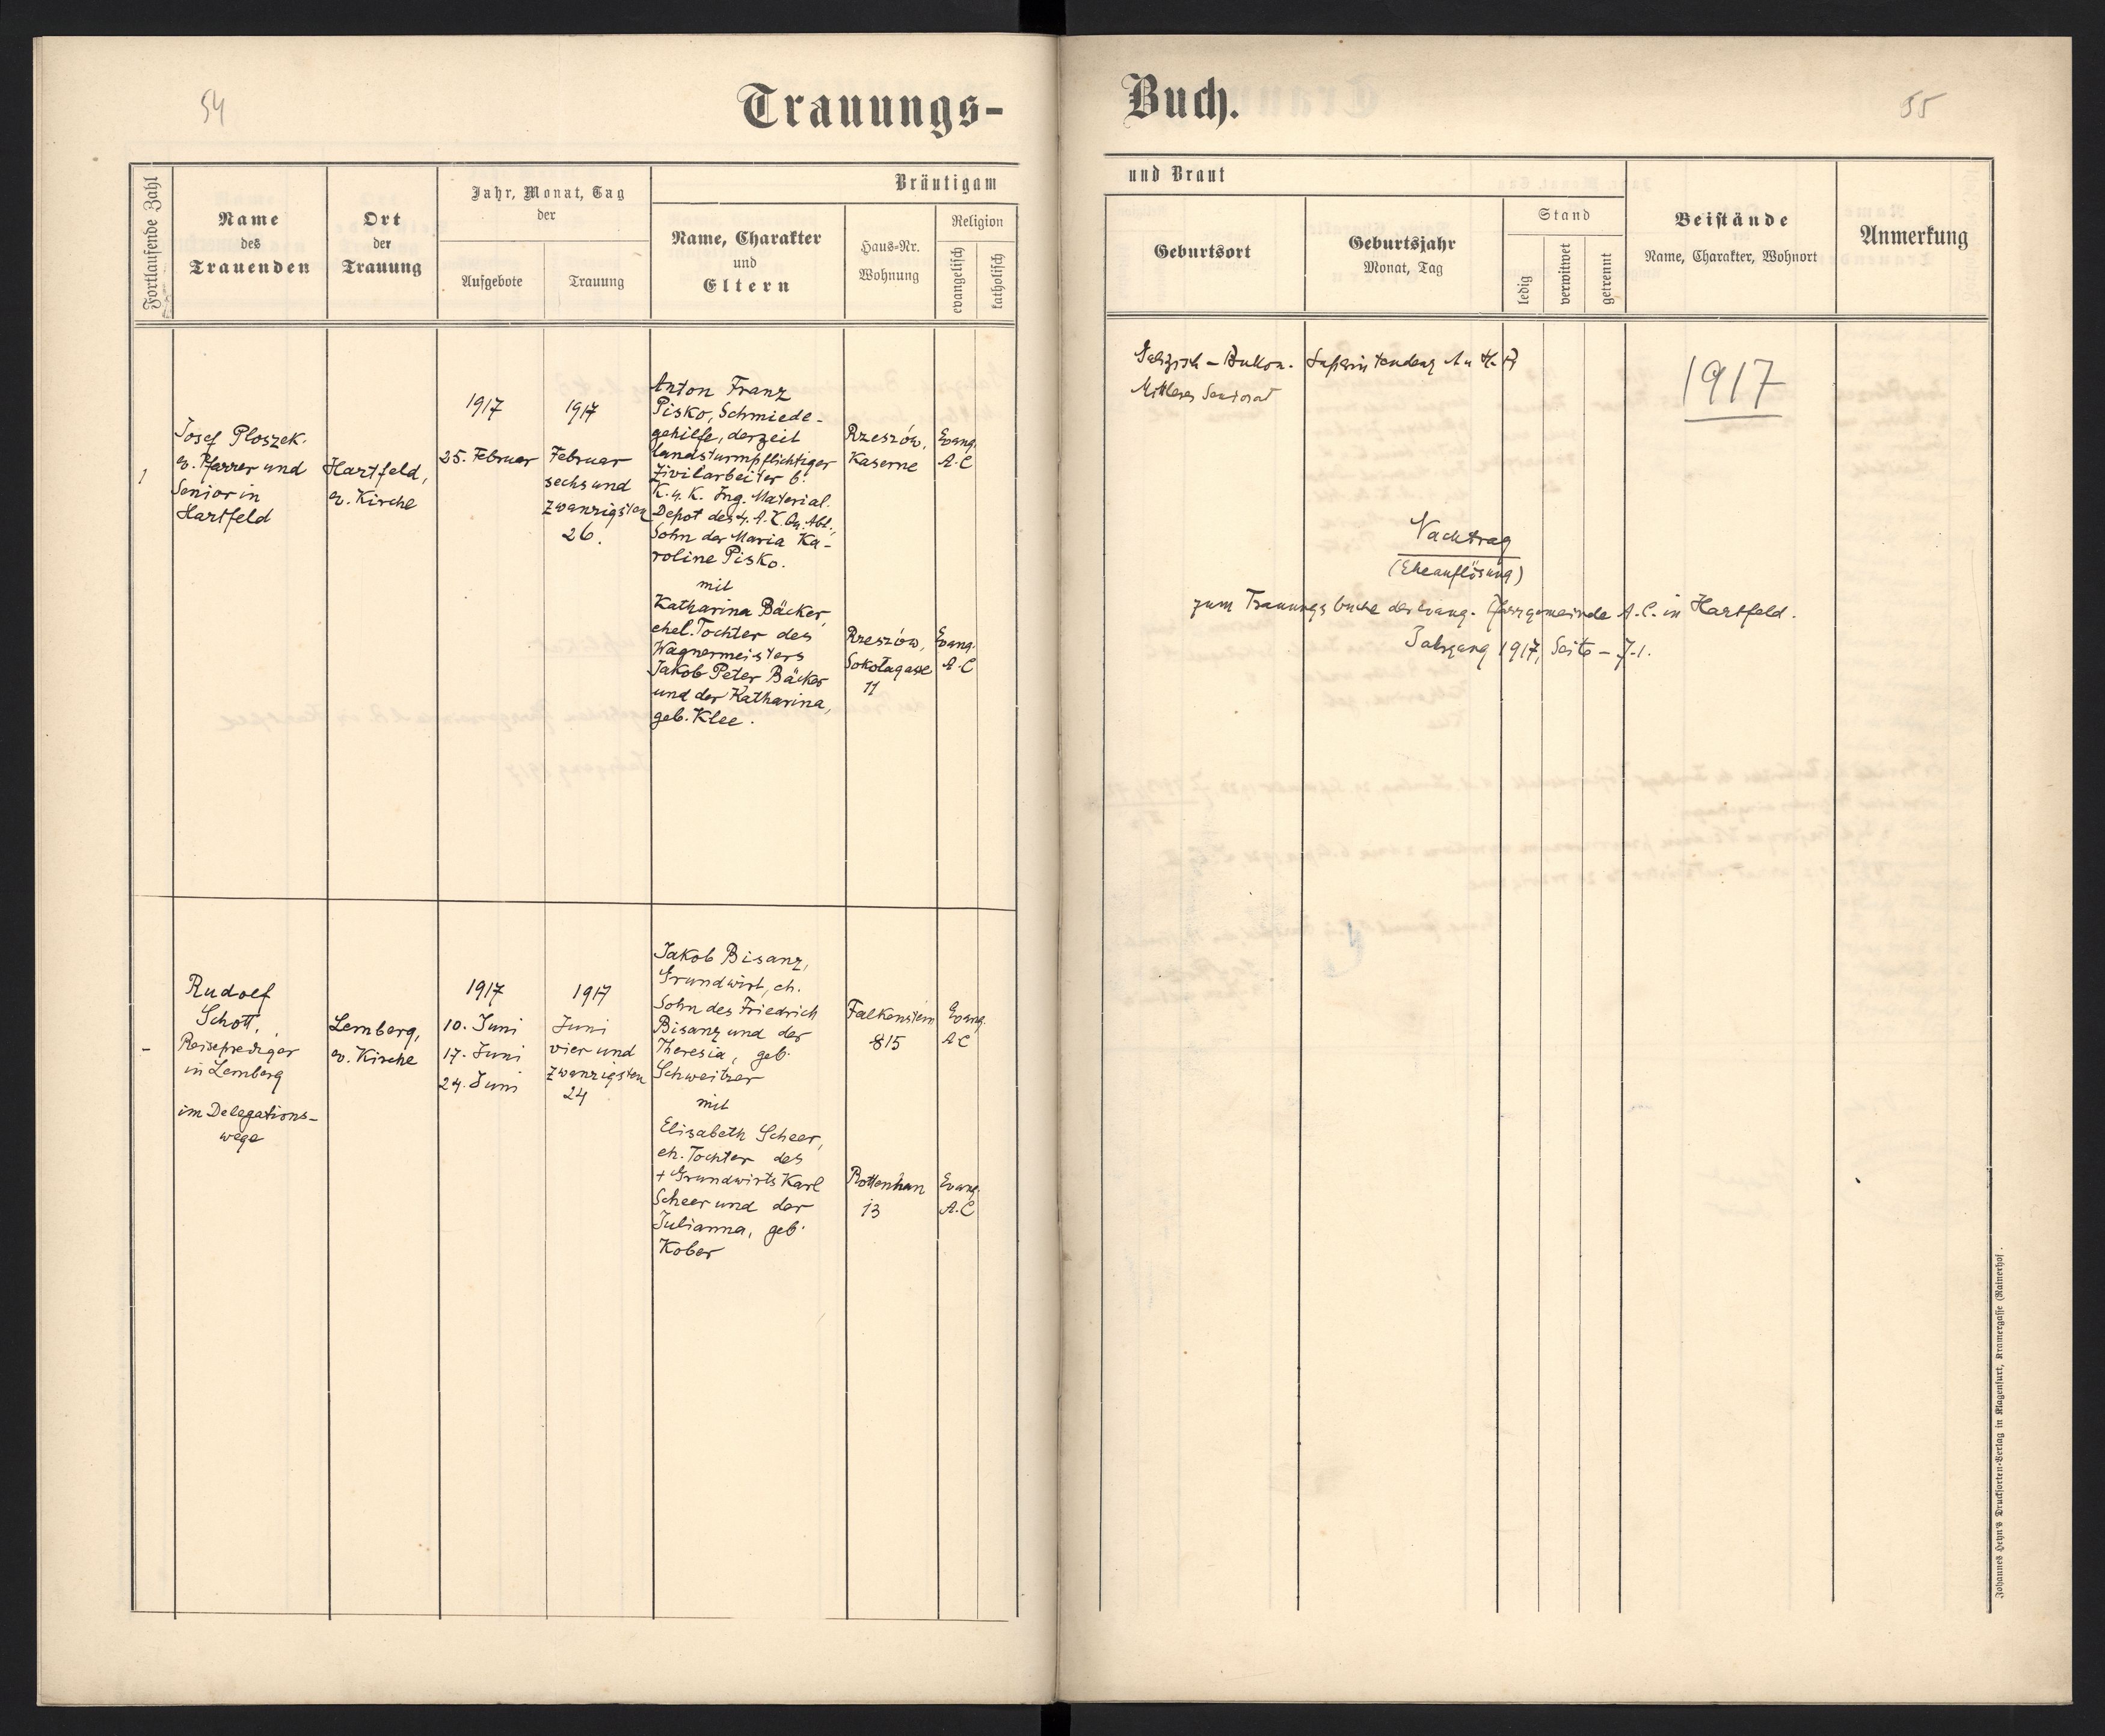 54
Trauungs-
Fortlaufende Zahl
Name
des
Trauenden
Ort
der
Trauung
Jahr, Monat, Tag
der
Aufgebote
Trauung
Bräutigam
Name, Charakter
und
Eltern
Haus-Nr.
Wohnung
Religion
evangelisch
katholisch
1
Josef Ploszek.
ev. Pfarrer und
Senior in
Hartfeld
Hartfeld,
ev. Kirche
1917
25. Februar
1917
Februar
sechs und
zwanzigsten
26.
Anton Franz
Pisko, Schmiede-
gehilfe, derzeit
landsturmpflichtiger
Zivilarbeiter b.
K. u. K. Ing. Material.
Depot des 4. A. K. Qu. Abt.,
Sohn der Maria Ka-
roline Pisko.
mit
Katharina Bäcker,
ehel. Tochter des
Wagnermeisters
Jakob Peter Bäcker
und der Katharina,
geb. Klee.
Rzeszów,
Kaserne
Evang.
A. C
Rzeszów,
Sokołagasse
11
Evang.
A. C
-
Rudolf
Schott,
Reiseprediger
in Lemberg
im Delegations-
wege
Lemberg,
ev. Kirche
1917
10. Juni
17. Juni
24. Juni
1917
Juni
vier und
zwanzigsten
24
Jakob Bisanz,
Grundwirt, eh.
Sohn des Friedrich
Bisanz und der
Theresia, geb.
Schweitzer
mit
Elisabeth Scheer,
eh. Tochter des
+ Grundwirts Karl
Scheer und der
Julianna, geb.
Kober
Falkenstein
815
Evang.
A C
Rottenhan
13
Evang.
A. C
Buch.
55
und Braut
Geburtsort
Geburtsjahr
Monat, Tag
Stand
ledig
verwitwet
getrennt
Beistände
Name, Charakter, Wohnort
Anmerkung
Galizisch - Bukow. Superintendenz A u H. B
Mittleres Seniorat
1917
Nachtrag
(Eheauflösung)
zum Trauungsbuche der evang. Pfarrgemeinde A. C. in Hartfeld.
Jahrgang 1917, Seite - J. 1.
Johannes Heyn's Drucksorten-Verlag in Klagenfurt, Kramergasse (Rainerhof).